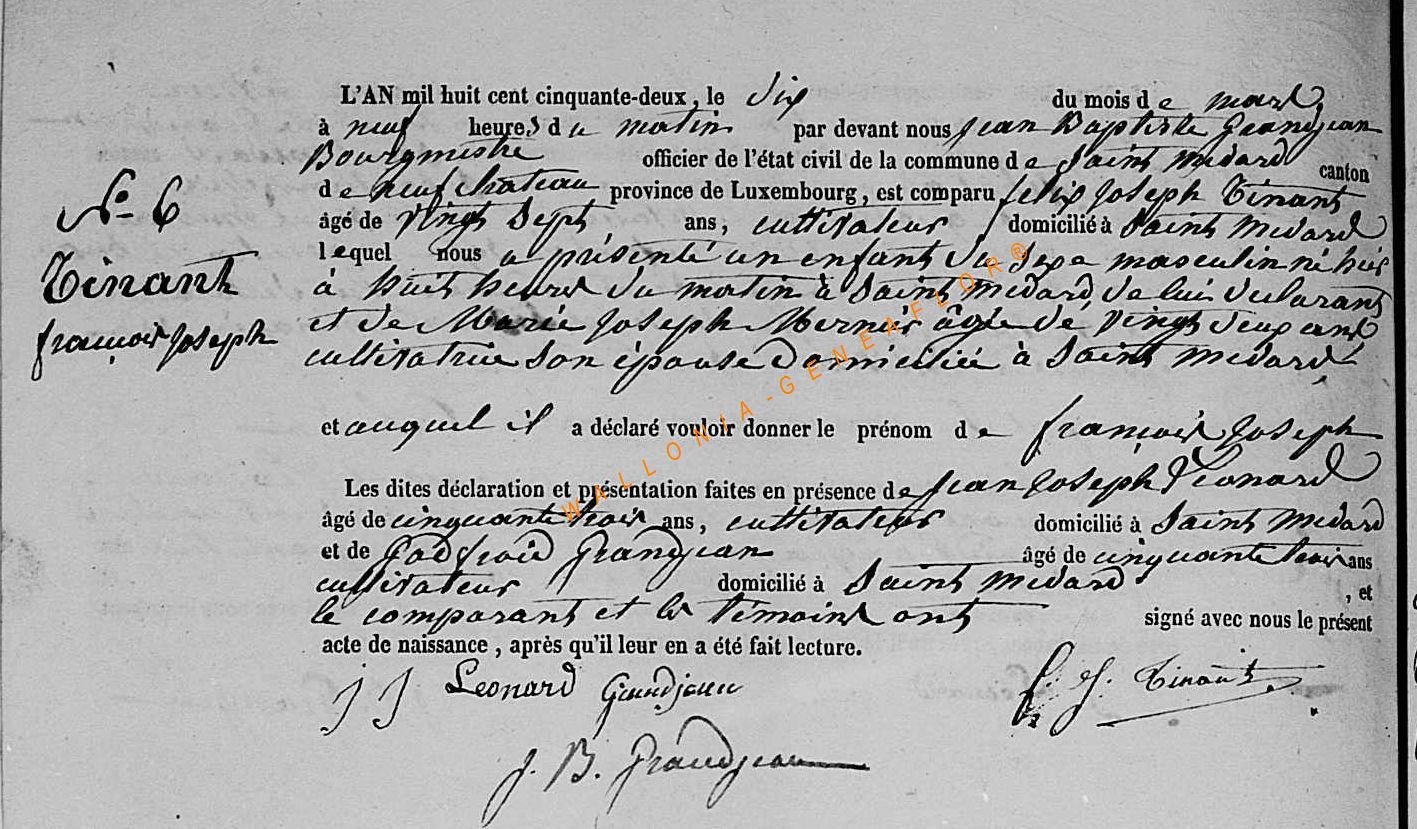 L'AN mil huit cent cinquante-deux, le six du mois de mars,
à neuf heures du matin par devant nous jean Baptiste Grandjean
Bourgmestre officier de l'état civil de la commune de Saint medard canton
de neufchateau province de Luxembourg, est comparu felix joseph Tinant
âgé de vingt sept, ans, cultivateur domicilié à Saint medard
lequel nous a présenté un enfant du sexe masculin né hier
à huit heures du matin à Saint medard, de lui declarant
et de Marie joseph âgée de vingt deux ans
cultivatrice son épouse domiciliée à Saint medard
et auquel il a déclaré vouloir donner le prénom de françois joseph
Les dites déclaration et présentation faites en présence de jean joseph Léonard
âgé de cinquante trois ans, cultivateur domicilié à Saint medard
et de Godfroid grandjean âgé de cinquante trois ans
cultivateur domicilié à Saint medard , et
le comparant et les témoins ont signé avec nous le présent
acte de naissance, après qu'il leur en a été fait lecture.
N° 6
Tinant
françois joseph
j j Leonard Grandjean f. j. Tinant
j. B. Grandjean
WALLONIA-GENEAFLOR®